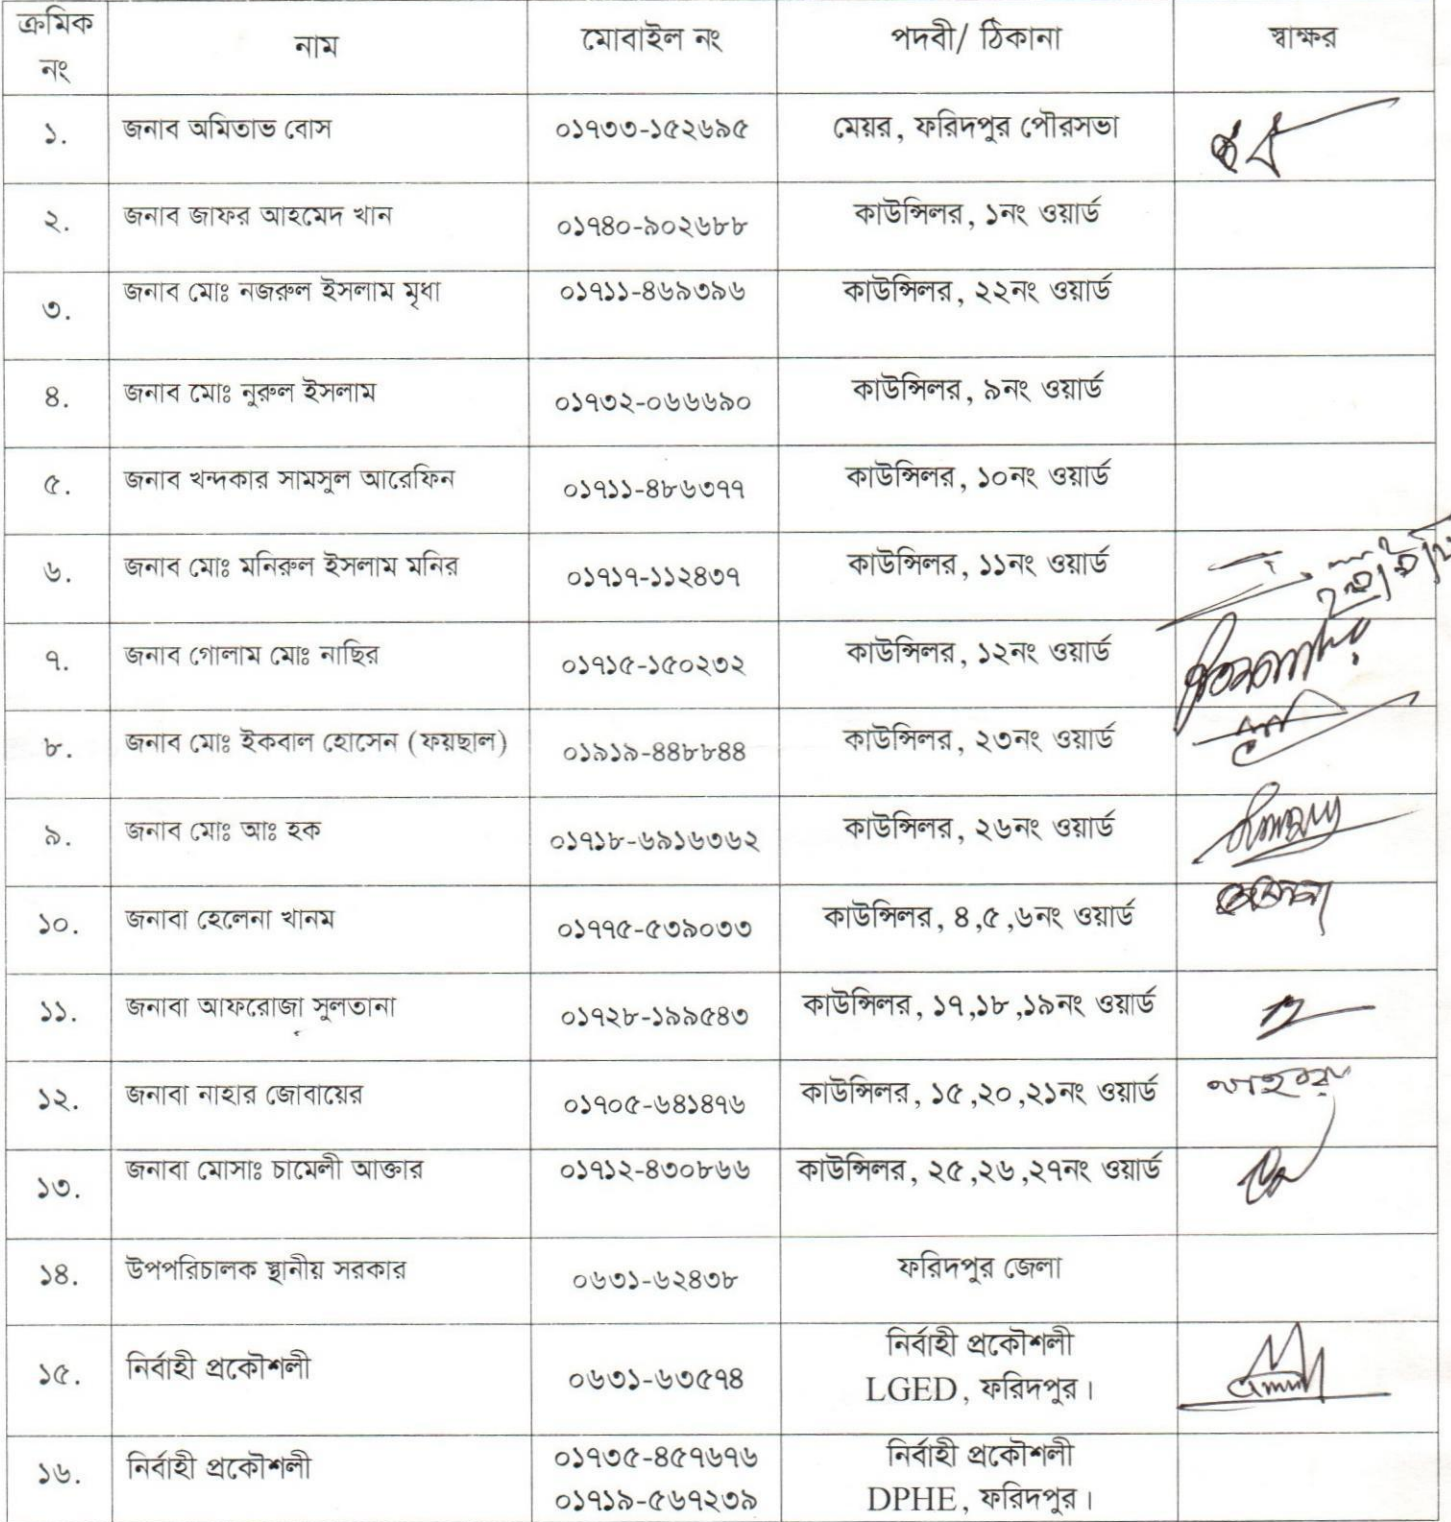 ক্রমিক নং নাম মোবাইল নং পদবী/ ঠিকানা স্বাক্ষর
১. জনাব অমিতাভ বোস ০১৭৩৩-১৫২৬৯৫ মেয়র, ফরিদপুর পৌরসভা
২. জনাব জাফর আহমেদ খান ০১৭৪০-৯০২৬৮৮ কাউন্সিলর, ১নং ওয়ার্ড
৩. জনাব মোঃ নজরুল ইসলাম মৃধা ০১৭১১-৪৬৯৩৯৬ কাউন্সিলর, ২২নং ওয়ার্ড
৪. জনাব মোঃ নুরুল ইসলাম ০১৭৩২-০৬৬৬৯০ কাউন্সিলর, ৯নং ওয়ার্ড
৫. জনাব খন্দকার সামসুল আরেফিন ০১৭১১-৪৮৬৩৭৭ কাউন্সিলর, ১০নং ওয়ার্ড
৬. জনাব মোঃ মনিরুল ইসলাম মনির ০১৭১৭-১১২৪৩৭ কাউন্সিলর, ১১নং ওয়ার্ড
৭. জনাব গোলাম মোঃ নাছির ০১৭১৫-১৫০২৩২ কাউন্সিলর, ১২নং ওয়ার্ড
৮. জনাব মোঃ ইকবাল হোসেন (ফয়ছাল) ০১৯১৯-৪৪৮৮৪৪ কাউন্সিলর, ২৩নং ওয়ার্ড
৯. জনাব মোঃ আঃ হক ০১৭১৮-৬৯১৬৩৬২ কাউন্সিলর, ২৬নং ওয়ার্ড
১০. জনাবা হেলেনা খানম ০১৭৭৫-৫৩৯০৩৩ কাউন্সিলর, ৪,৫,৬নং ওয়ার্ড
১১. জনাবা আফরোজা সুলতানা ০১৭২৮-১৯৯৫৪৩ কাউন্সিলর, ১৭,১৮,১৯নং ওয়ার্ড
১২. জনাবা নাহার জোবায়ের ০১৭০৫-৬৪১৪৭৬ কাউন্সিলর, ১৫,২০,২১নং ওয়ার্ড
১৩. জনাবা মোসাঃ চামেলী আক্তার ০১৭১২-৪৩০৮৬৬ কাউন্সিলর, ২৫,২৬,২৭নং ওয়ার্ড
১৪. উপপরিচালক স্থানীয় সরকার ০৬৩১-৬২৪৩৮ ফরিদপুর জেলা
১৫. নির্বাহী প্রকৌশলী ০৬৩১-৬৩৫৭৪ নির্বাহী প্রকৌশলী
LGED, ফরিদপুর।
১৬. নির্বাহী প্রকৌশলী ০১৭৩৫-৪৫৭৬৭৬ নির্বাহী প্রকৌশলী
০১৭১৯-৫৬৭২৩৯ DPHE, ফরিদপুর।